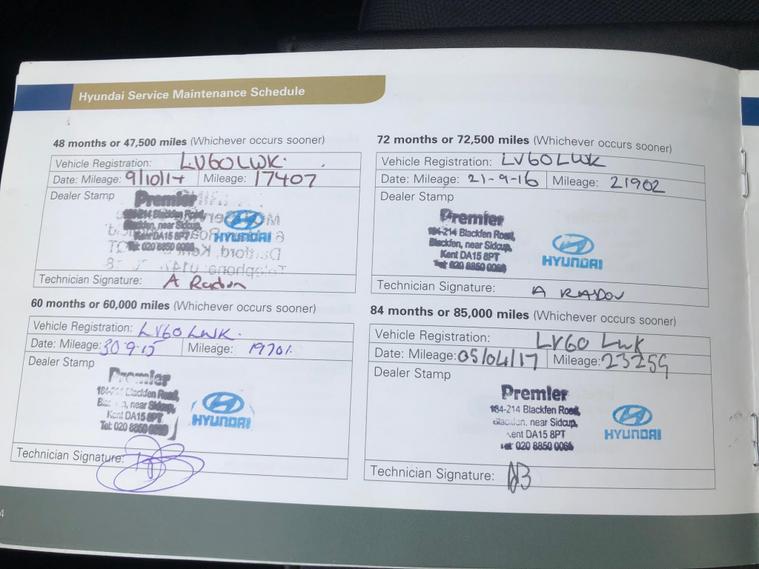 Hyundai Service Maintenance Schedule
48 months or 47,500 miles (Whichever occurs sooner)
Vehicle Registration: LV60LWK.
Date: Mileage: 9/10/14 Mileage: 17407
Dealer Stamp
Premier
184-214 Blackfen Road,
Blackfen, near Sidcup,
Kent DA15 8PT
Tel: 020 8850 0066
HYUNDAI
Technician Signature: A Radon
60 months or 60,000 miles (Whichever occurs sooner)
Vehicle Registration: LV60 LWK.
Date: Mileage: 30 9.15 Mileage: 19701.
Dealer Stamp
Premier
184-214 Blackfen Road,
near Sidcup,
Kent DA15 8PT
Tel: 020 8850
HYUNDAI
Technician Signature:
72 months or 72,500 miles (Whichever occurs sooner)
Vehicle Registration: LV60LWK
Date: Mileage: 21-9-16 Mileage: 21902
Dealer Stamp
Premier
184-214 Blackfen Road,
Blackfen, near Sidcup,
Kent DA15 8PT
Tel: 020 8850 0066
HYUNDAI
Technician Signature: A RADON
84 months or 85,000 miles (Whichever occurs sooner)
Vehicle Registration: LV60 LWK
Date: Mileage: 05/04/17 Mileage: 23259
Dealer Stamp
Premier
184-214 Blackfen Road,
near Sidcup,
Kent DA15 8PT
Tel: 020 8850 0066
HYUNDAI
Technician Signature:
4